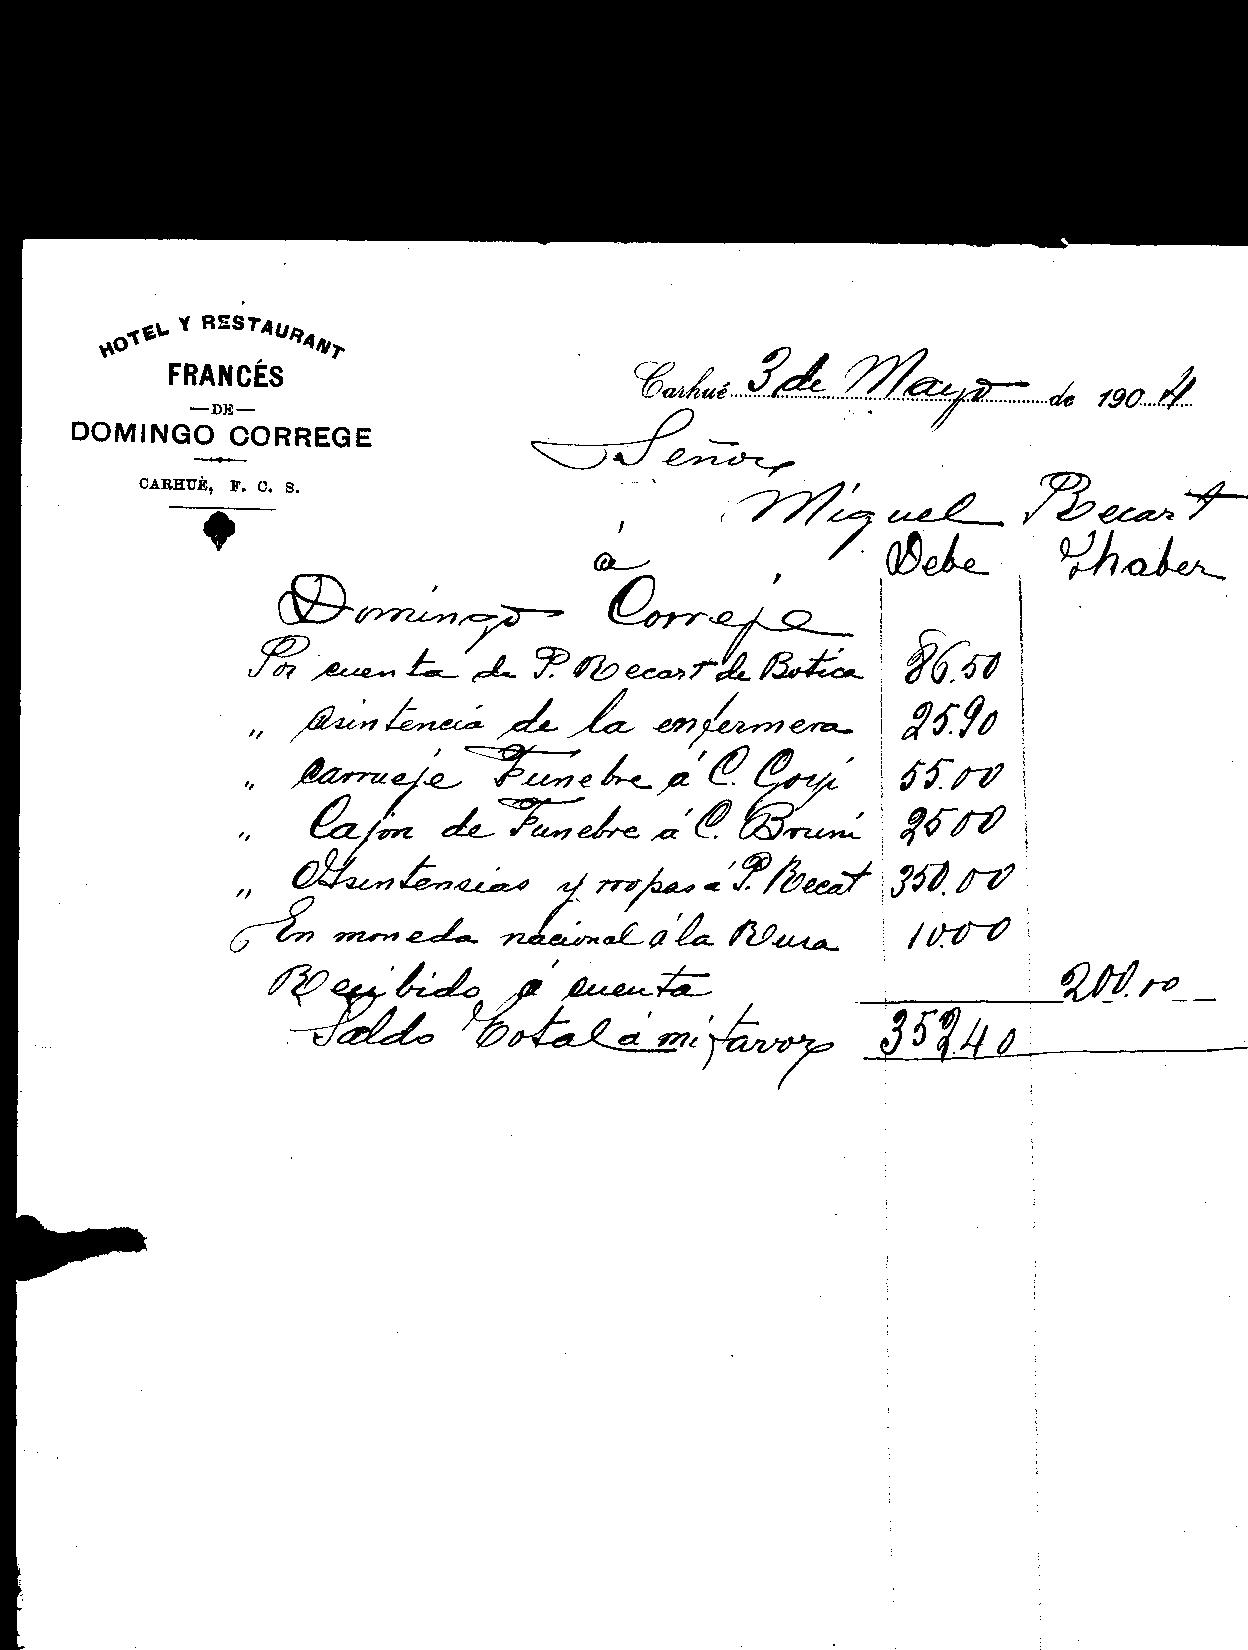 HOTEL Y RESTAURANT
FRANCÉS
—DE—
DOMINGO CORREGE
CARHUÉ, F. C. S.
Carhué 3 de Mayo de 1904
Señor
Miguel Recart
á Debe Y haber
Domingo Correje
Por cuenta de P. Recart de Botica 86.50
" asintencia de la enfermera 25.90
" carrueje Funebre á C. 55.00
" Cajon de Funebre á C. Bruni 25 00
" Asintensias y rropas á P. Recat 350.00
En moneda nacional á la Rusa 10.00
Recibido á cuenta 200.00
Saldo Total á mi favor 352.40